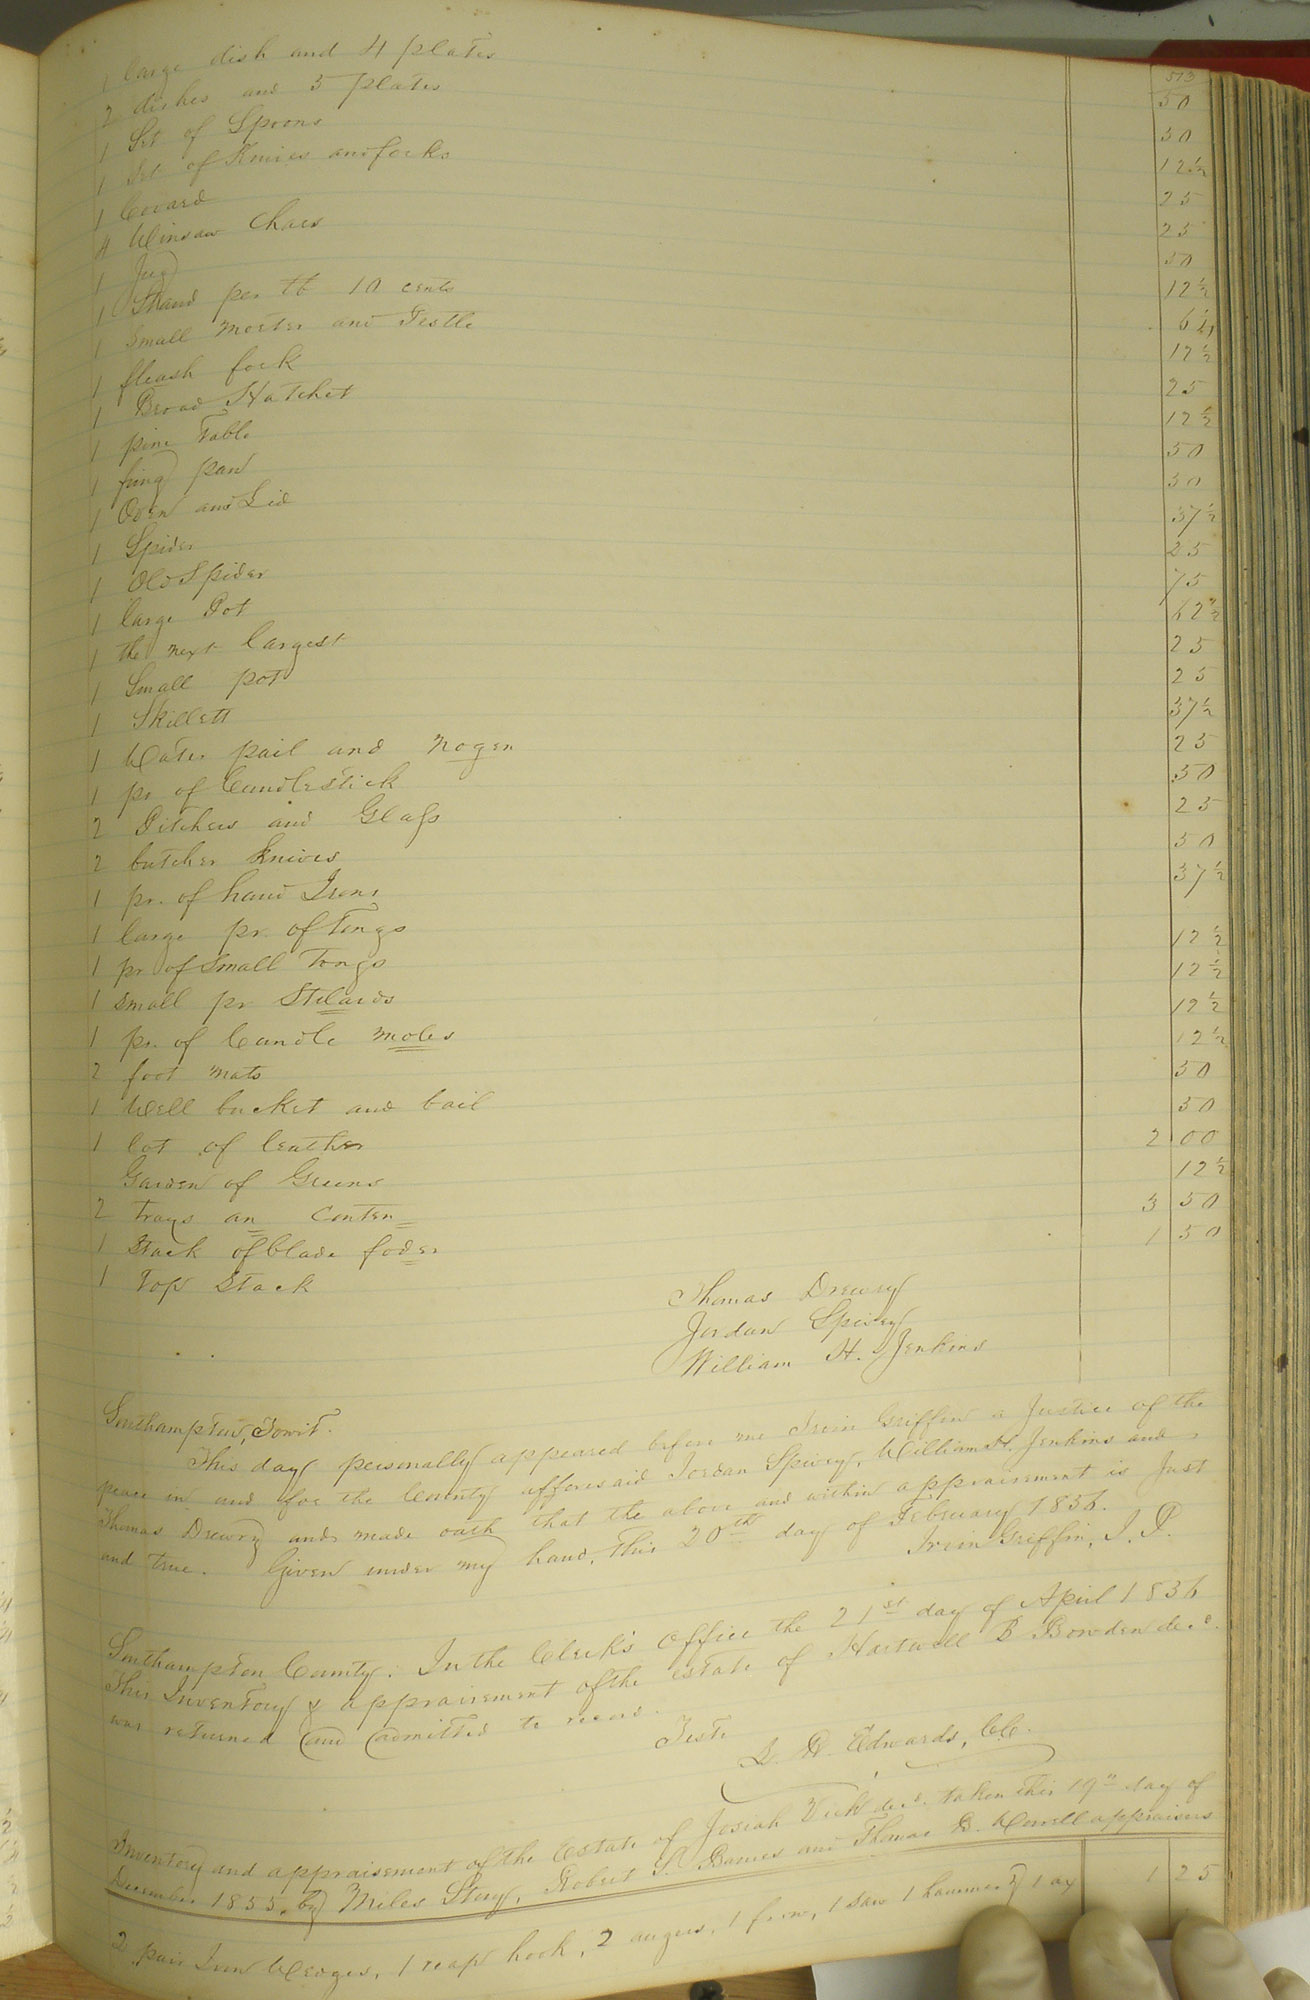 513
1 large dish and 4 plates 50
2 dishes and 5 plates 50
1 Set of Spoons 12½
1 Set of Knives and forks 25
1 Covard 25
4 Winsaw Chaes 50
1 Jug 12½
1 Stand per lb 10 cents 6¼
1 Small morter and Pestle 12½
1 fleash fork 25
1 Broad Hatchet 12½
1 pine Table 50
1 fring pan 50
1 Oven and Lid 37½
1 Spider 25
1 Old Spider 75
1 large Pot 62½
1 the next largest 25
1 Small pot 25
1 Skillett 37½
1 Water pail and nogen 25
1 pr of Candlestick 50
2 Pitchers and Glass 25
2 butcher knives 50
1 pr. of hand Irons 37½
1 large pr. of Tongs
1 pr of Small Tongs 12½
1 small pr Stilards 12½
1 pr. of Candle moles 12½
2 foot mats 12½
1 Well bucket and bail 50
1 lot of leather 50
Garden of Greens 2 00
2 Trays an Conten 12½
1 Stack of blade foder 3 50
1 Top Stack 1 50
Thomas Drewry
Jordan Spivey
William H. Jenkins
Southampton, Towit.
This day personally appeared before me Irvin Griffin a Justice of the
peace in and for the County afforesaid Jordan Spivey, William H. Jenkins and
Thomas Drewry and made oath that the above and within appraisement is Just
and true. Given under my hand, this 20th day of February 1856.
Irvin Griffin, J. P.
Southampton County: In the Clerk's Office the 21st day of April 1856
This Inventory & appraisement of the estate of Hartwell B Bowden decd.
was returned and admitted to record.
Teste
L. R. Edwards, CC.
Inventory and appraisement of the Estate of Josiah Vick decd. taken this 19th day of
December 1855, by Miles Story, Robert S. Barnes and Thomas D. Worrell appraisers
2 pair Iron Wedges, 1 reap hook, 2 augers, 1 frow, 1 saw 1 hammer & 1 ax 1 25